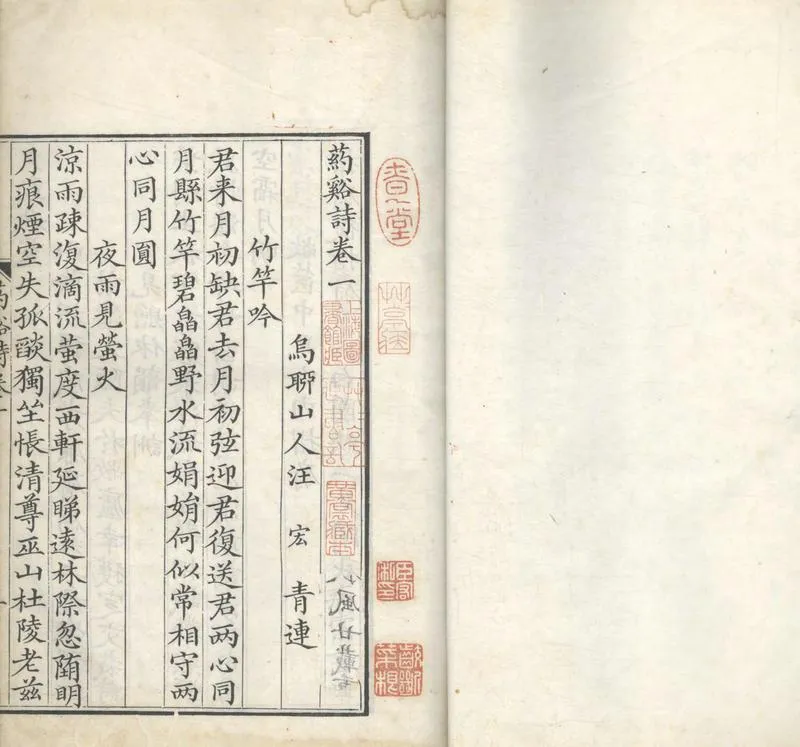 葯谿詩卷一
烏聊山人汪 宏 青連
竹竿吟
君来月初缺君去月初弦迎君復送君两心同
月縣竹竿碧皛皛野水流娟娟何似常相守两
心同月圓
夜雨見螢火
涼雨疎復滴流萤度西軒延睇遠林際忽蕳明
月痕煙空失孤燄獨坐悵清尊巫山杜陵老兹
葯谿詩卷一